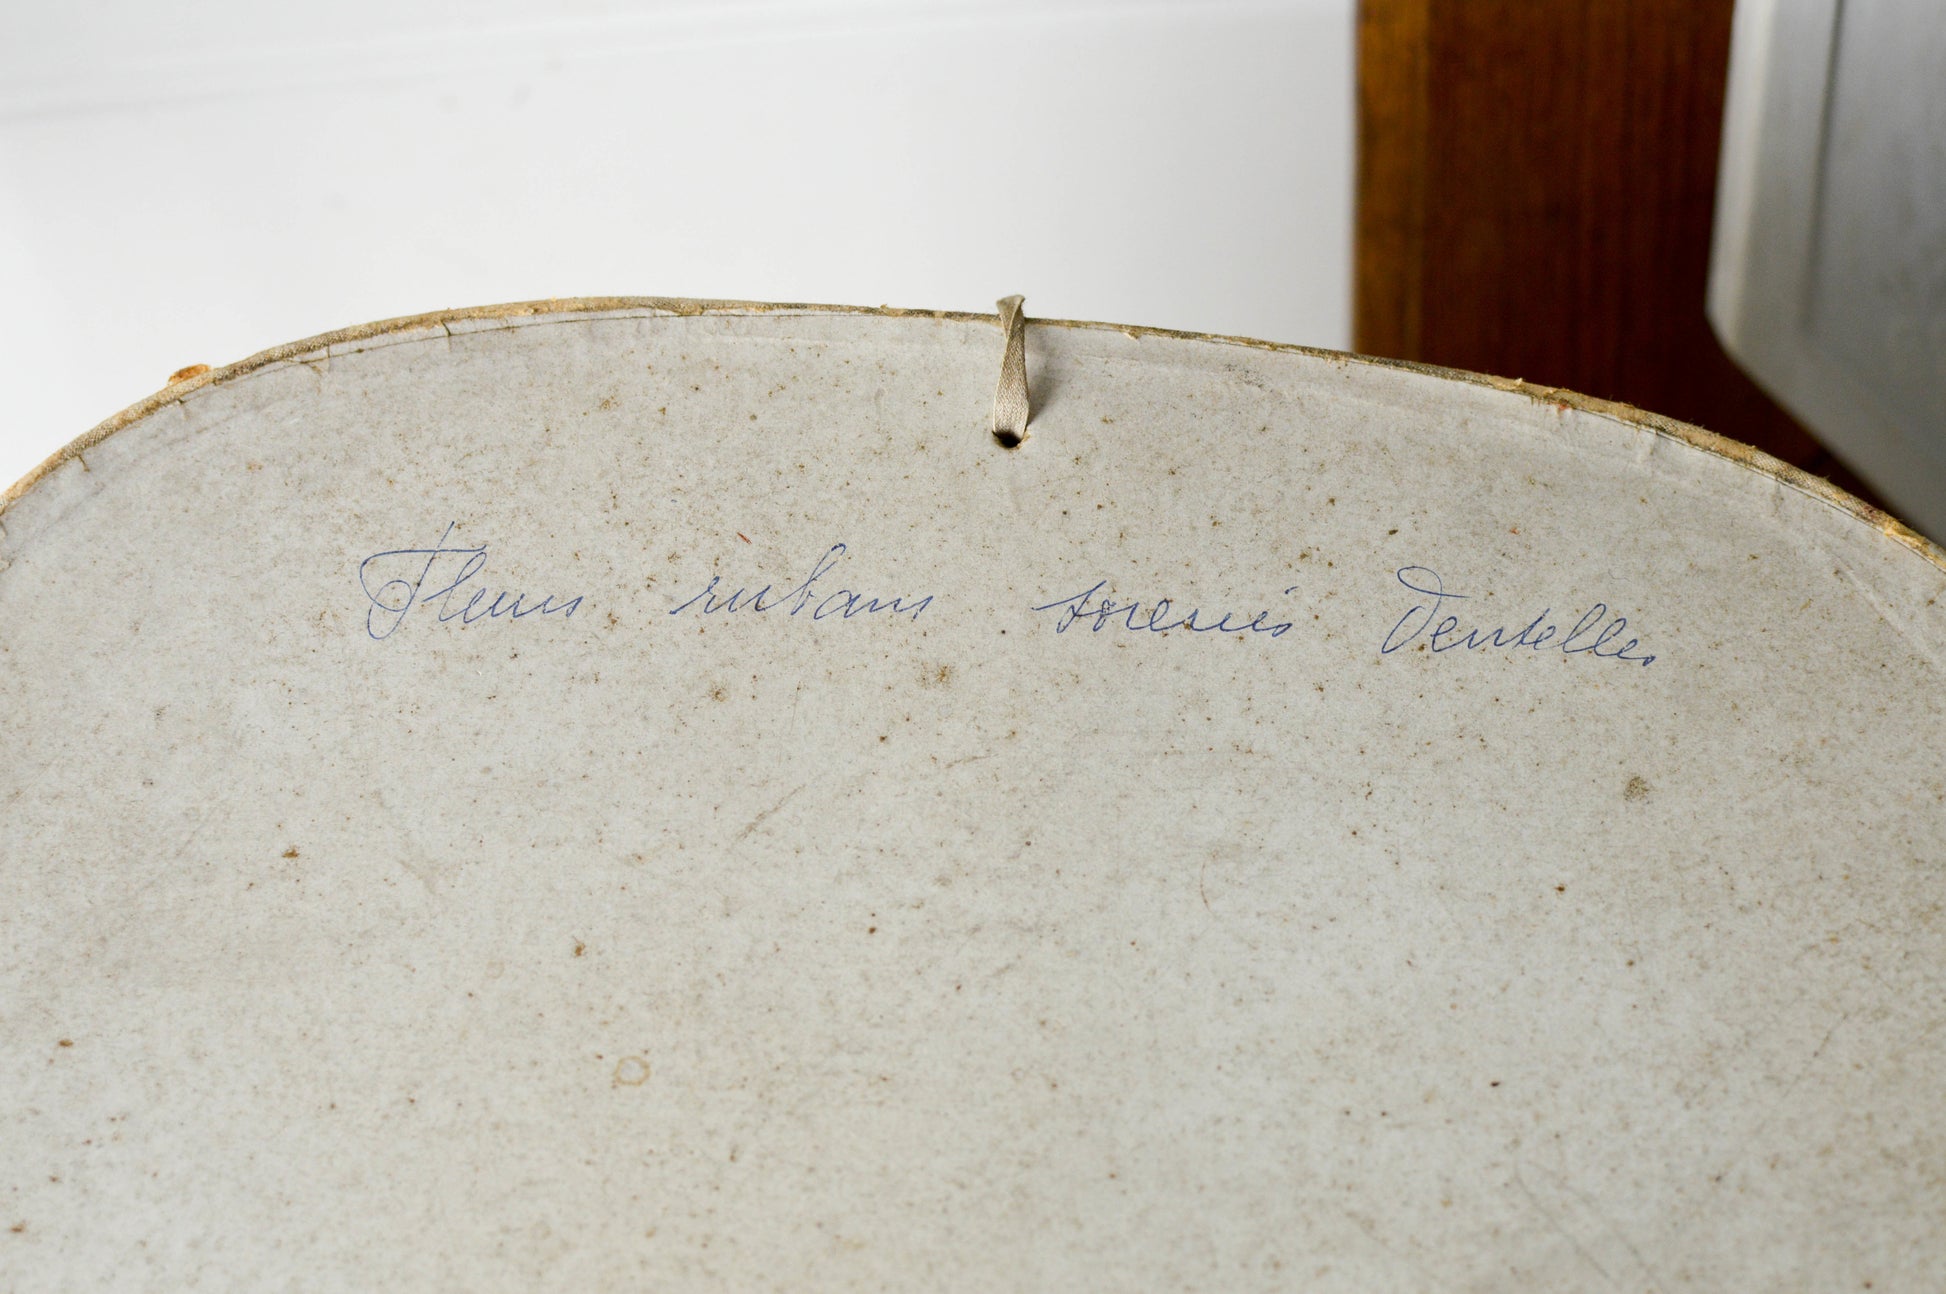 Fleurs rubans soieries Dentelles